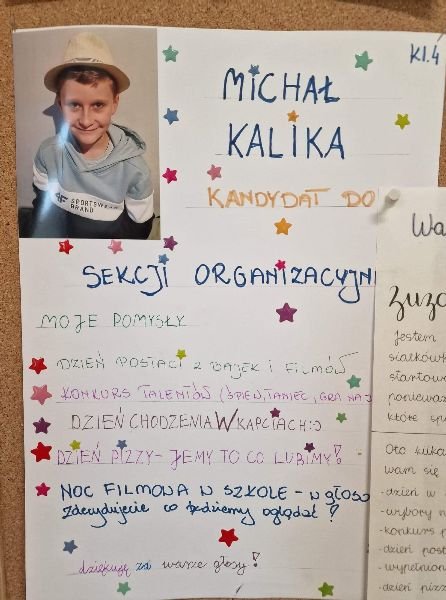 Kl.4
MICHAŁ
KALIKA
KANDYDAT DO
SEKCJI ORGANIZACYJN
MOJE POMYSŁY
DZIEŃ POSTACI Z BAJEK I FILMÓW
KONKURS TALENTÓW (ŚPIEW, TANIEC, GRA NA
DZIEŃ CHODZENIA W KAPCIACH :)
DZIEŃ PIZZY - JEMY TO CO LUBIMY!
NOC FILMOWA W SZKOLE - W GŁOSO
zdecydujecie co będziemy oglądać!
dziękuję za wasze głosy!
SPORTSWEAR
BRAND
Wa
Zuza
Jestem
siatkówk
startowa
ponieważ
które sp
Oto kilka
wam się
- dzień w
- wybory n
- konkurs p
- dzień post
- wypełnion
- dzień pizz